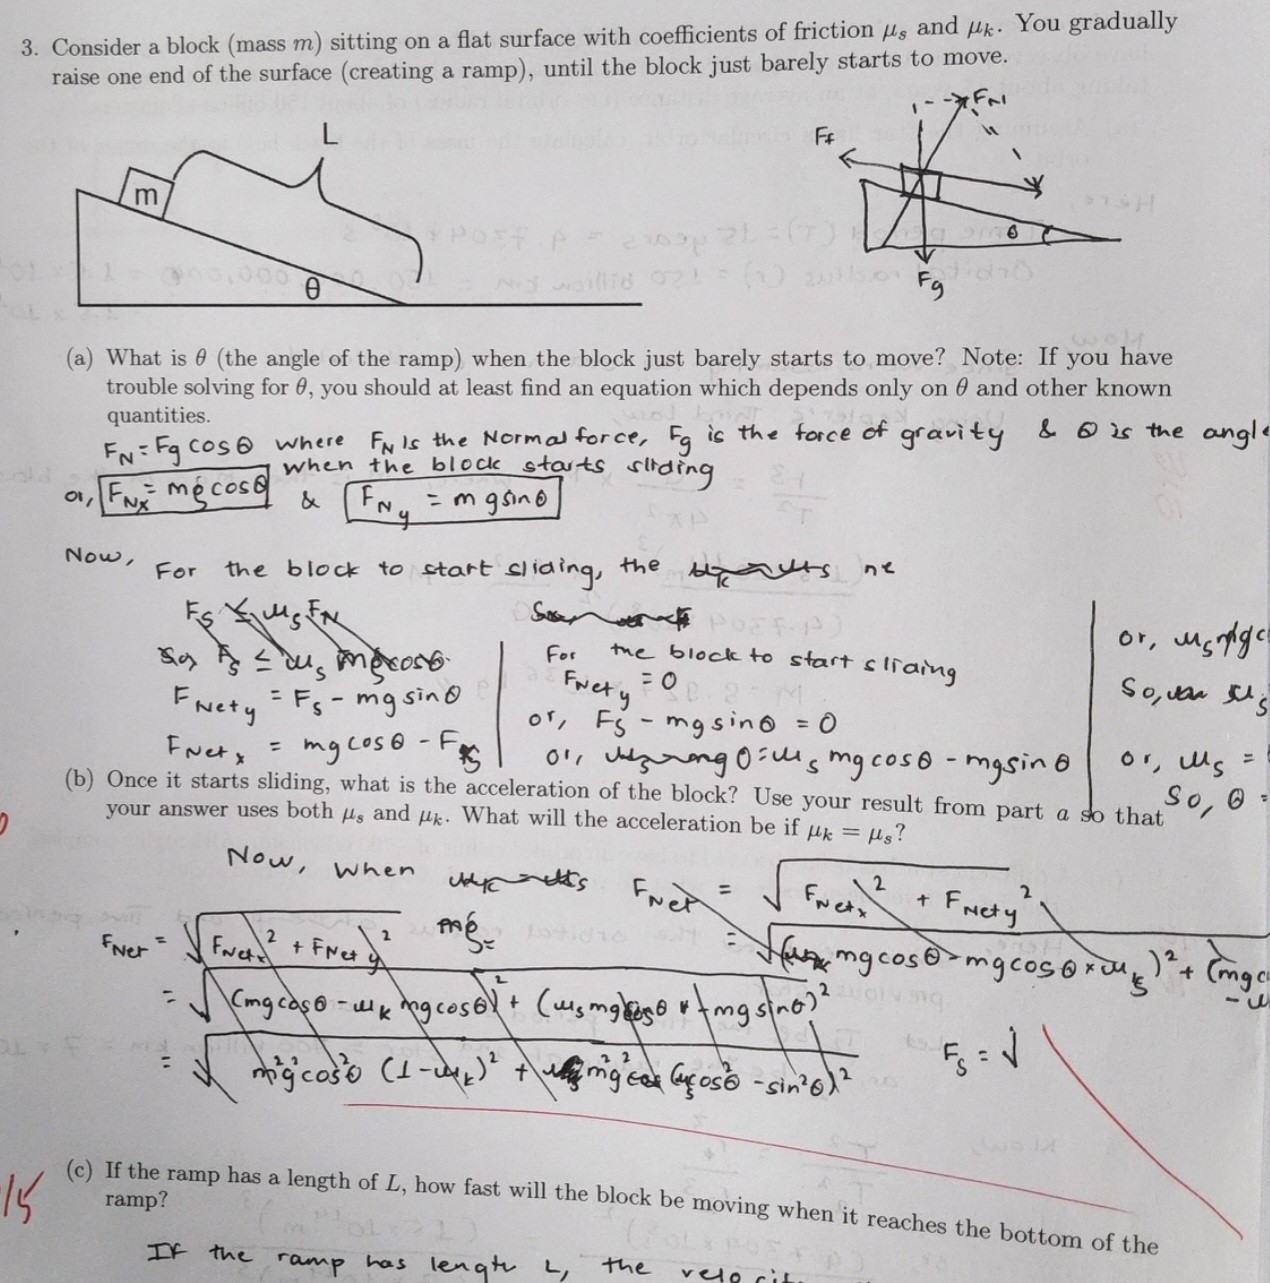 3. Consider a block (mass m) sitting on a flat surface with coefficients of friction μₛ and μₖ. You gradually
raise one end of the surface (creating a ramp), until the block just barely starts to move.
L
m
θ
F_N1
F_f
θ
F_g
(a) What is θ (the angle of the ramp) when the block just barely starts to move? Note: If you have
trouble solving for θ, you should at least find an equation which depends only on θ and other known
quantities.
F_N = F_g cosθ where F_N is the Normal force, F_g is the force of gravity & θ is the angle
when the block starts sliding
or, F_Nx = mg cosθ & F_Ny = mg sinθ
Now, For the block to start sliding, the
F_s ≤ μ_s F_N
So, F_s ≤ μ_s mg cosθ
F_Nety = F_s - mg sinθ
F_Netx = mg cosθ - F
For the block to start sliding
F_Nety = 0
or, F_s - mg sinθ = 0
or, = μ_s mg cosθ - mg sinθ
or, μ_s mg c
So,
or, μ_s =
So, θ =
(b) Once it starts sliding, what is the acceleration of the block? Use your result from part a so that
your answer uses both μₛ and μₖ. What will the acceleration be if μₖ = μₛ?
Now, when
F_Net = √(F_Netx² + F_Nety²)
= √( mg cosθ - mg cosθ × μ_k)² + (mg c
F_Net = √(F_Netx² + F_Nety²) mg =
= √(mg cosθ - μ_k mg cosθ)² + (μ_s mg cosθ - mg sinθ)²
= √m²g²cos²θ (1-μ_k)² + m²g² (μ_s cos²θ - sin²θ)²
F_s = √
15
(c) If the ramp has a length of L, how fast will the block be moving when it reaches the bottom of the
ramp?
If the ramp has length L, the